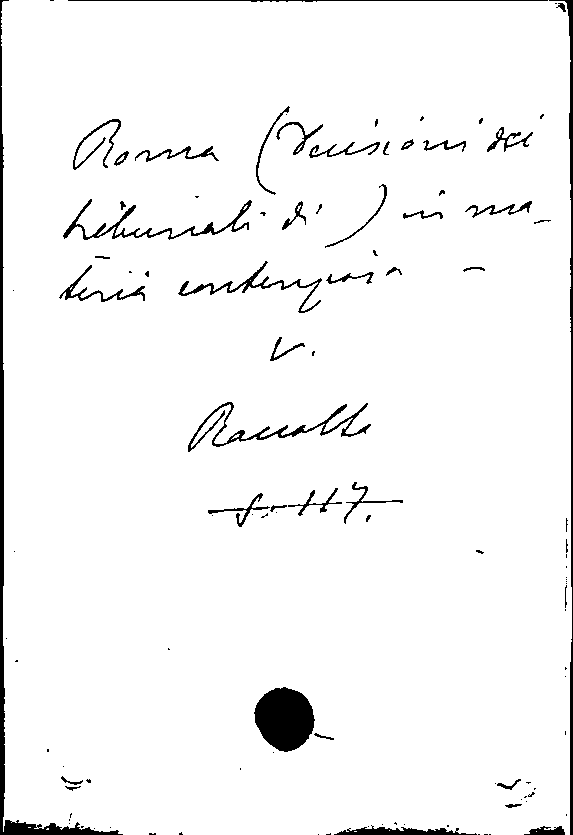 Roma (decisioni dei
tribunali di) in ma-
teria
V.
Raccolta
S. 117.